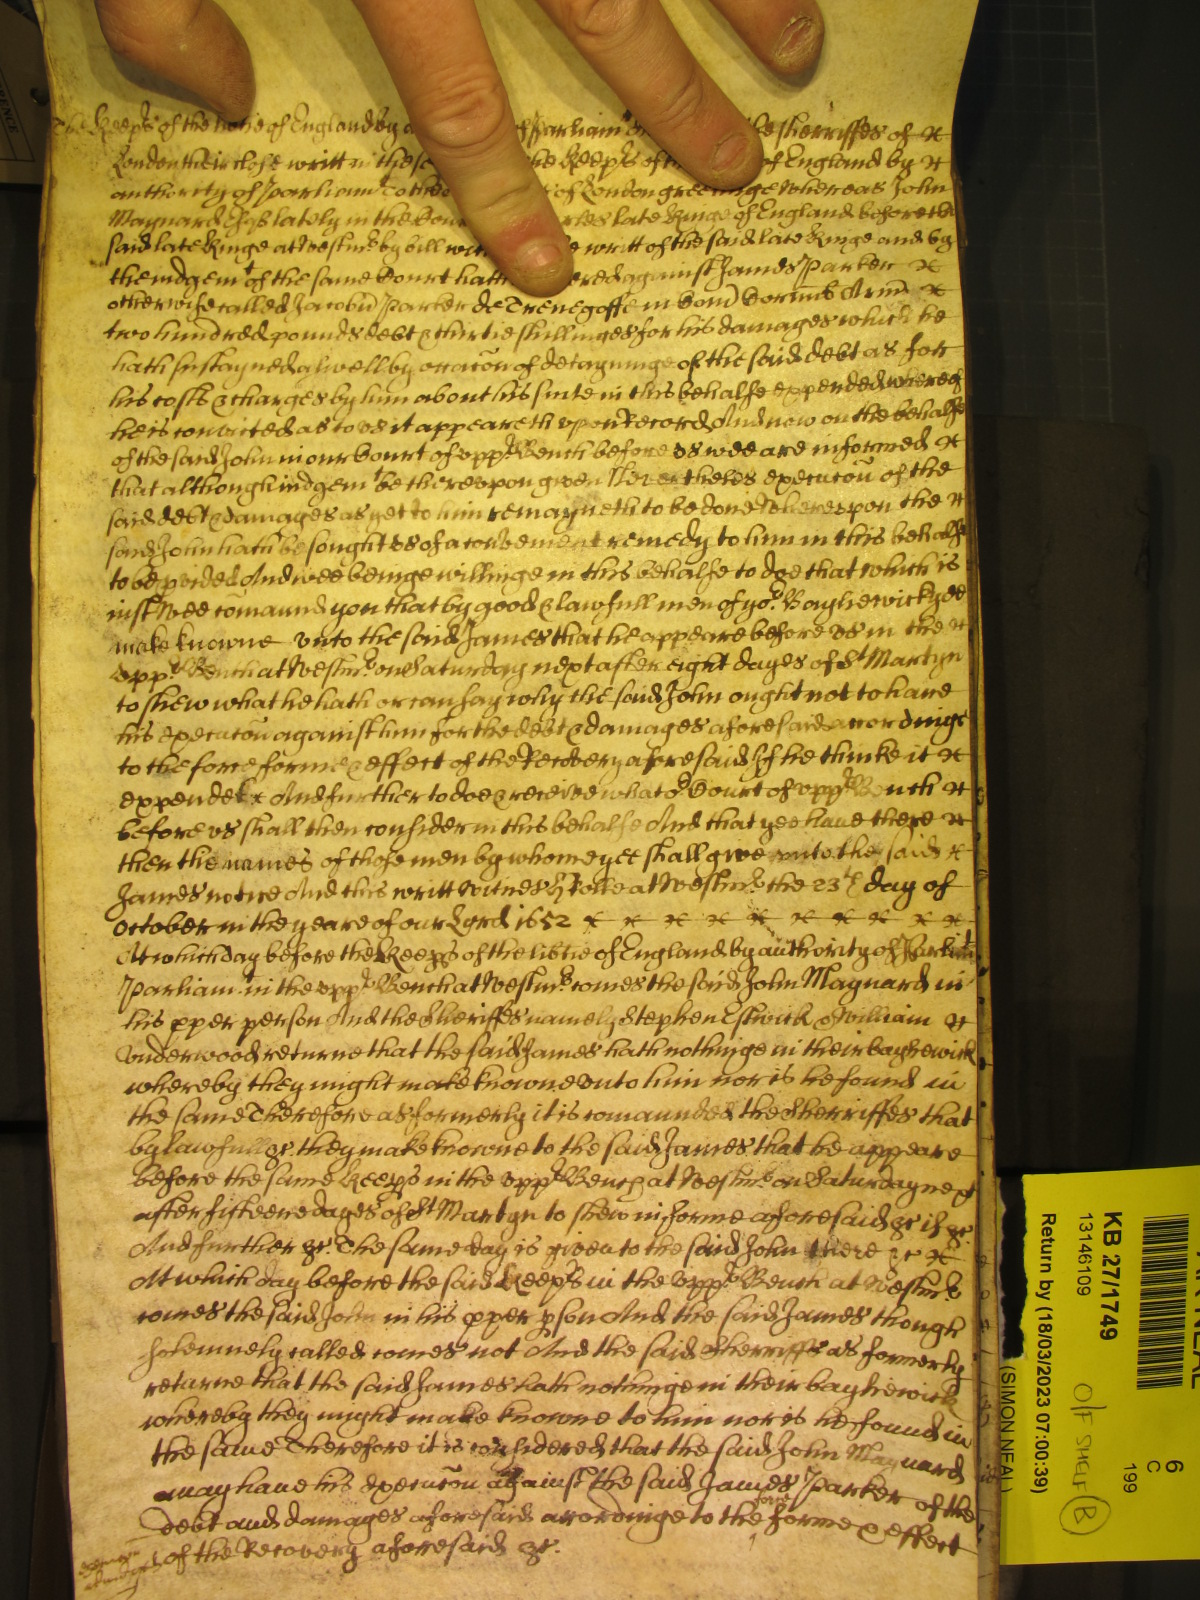 The Keeps of the libtie of England by a of Parliamt the Sherriffes of
London their close writt in these the Keeps of of England by
authority of Parliamt To the of London greetinge Whereas John
Maynard Esqr lately in the Cou late Kinge of England before the
said late Kinge at Westmr by bill writt of the said late Kinge and by
the iudgemt of the same Court hath red against James Parker
otherwise called Jacobus Parker de Trenegoffe in Com Cornub Armig
two hundred pounds debt & thirtie shillinges for his damages which he
hath sustayned aswell by occacon of detayninge of the said debt as for
his costs & charges by him about his suite in this behalfe expended whereof
he is convicted as to us it appeareth upon Record And now on the behalfe
of the said John in our Court of uppr Bench before us wee are informed
that although iudgemt be thereupon given Nevertheles execucon of the
said debt & damages as yet to him remayneth to be done Whereupon the
said John hath besought us of a convement remedy to him in this behalfe
to be pvided And wee beinge willinge in this behalfe to doe that which is
iust Wee comaund you that by good & lawfull men of yor Baylewick yee
make knowne unto the said James that he appeare before us in the
uppr Bench at Westmr on Saturday next after eight dayes of St Martyn
to shew what he hath or can say why the said John ought not to have
his execucon against him for the debt & damages aforesaid accordinge
to the force forme & effect of the Recovery aforesaid If he thinke it
expendet And further to doe & receive what or Court of uppr Bench
before us shall then consider in this behalfe And that yee have there
then the names of those men by whome yee shall give unto the said
James notice And this writt Witnes H Rolle at Westmr the 23th day of
October in the yeare of our Lord 1652
At which day before the Keeps of the libtie of England by authority of
Parliamt in the uppr Bench at Westmr comes the said John Maynard in
his pper person And the Sherriffes namely Stephen Estwick & William
Underwood returne that the said James hath nothinge in their baylewick
whereby they might make knowne unto him nor is he found in
the same Therefore as formerly it is comaunded the Sherriffes that
by lawfull &c they make knowne to the said James that he appeare
before the same Keeps in the uppr Bench at Westmr on Saturday next
after fifteene dayes of St Martyn to shew in forme aforesaid &c if &c
And further &c. The same day is given to the said John there &c
At which day before the said Keeps in the uppr Bench at Westmr
comes the said John in his pper pson And the said James though
solemnely called comes not And the said Sherriffs as formerly
returne that the said James hath nothinge in their baylewick
whereby they might make knowne to him nor is he found in
the same Therefore it is considered that the said John Maynard
may have his execucon against the said James Parker of the
debt and damages aforesaid accordinge to the force forme & effect
of the Recovery aforesaid &c.
6
C
199
KB 27/1749
13146109
Return by (18/03/2023 07:00:39)
(SIMON NEAL)
O/F SHELF B